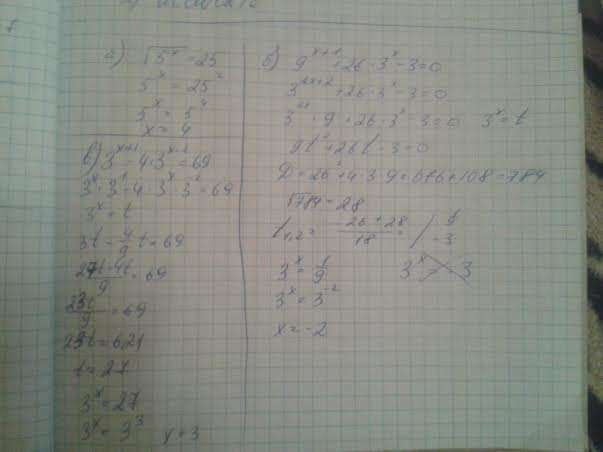 а) √5^x = 25
5^x = 25^2
5^x = 5^4
x = 4
б) 9^{x+1} + 26 · 3^x - 3 = 0
3^{2x+2} + 26 · 3^x - 3 = 0
3^{2x} · 9 + 26 · 3^x - 3 = 0   3^x = t
9t^2 + 26t - 3 = 0
D = 26^2 + 4 · 3 · 9 = 676 + 108 = 784
√784 = 28
t_{1,2} = (-26 ± 28)/18 = 1/9
-3
3^x = 1/9   3^x = -3
3^x = 3^{-2}
x = -2
в) 3^{x+1} - 4 · 3^{x-2} = 69
3^x · 3^1 - 4 · 3^x · 3^{-2} = 69
3^x = t
3t - 4/9 t = 69
(27t - 4t)/9 = 69
23t/9 = 69
23t = 621
t = 27
3^x = 27
3^x = 3^3   x = 3